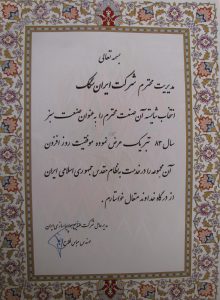 بسمه تعالی
مدیریت محترم شرکت ایران کمک
انتخاب شایسته آن صنعت محترم را به عنوان صنعت سبز
سال ۸۳ تبریک عرض نموده موفقیت روز افزون
آن مجموعه را در خدمت به نظام مقدس جمهوری اسلامی ایران
از درگاه خداوند متعال خواستارم .
مدیرعامل شرکت
مهندس